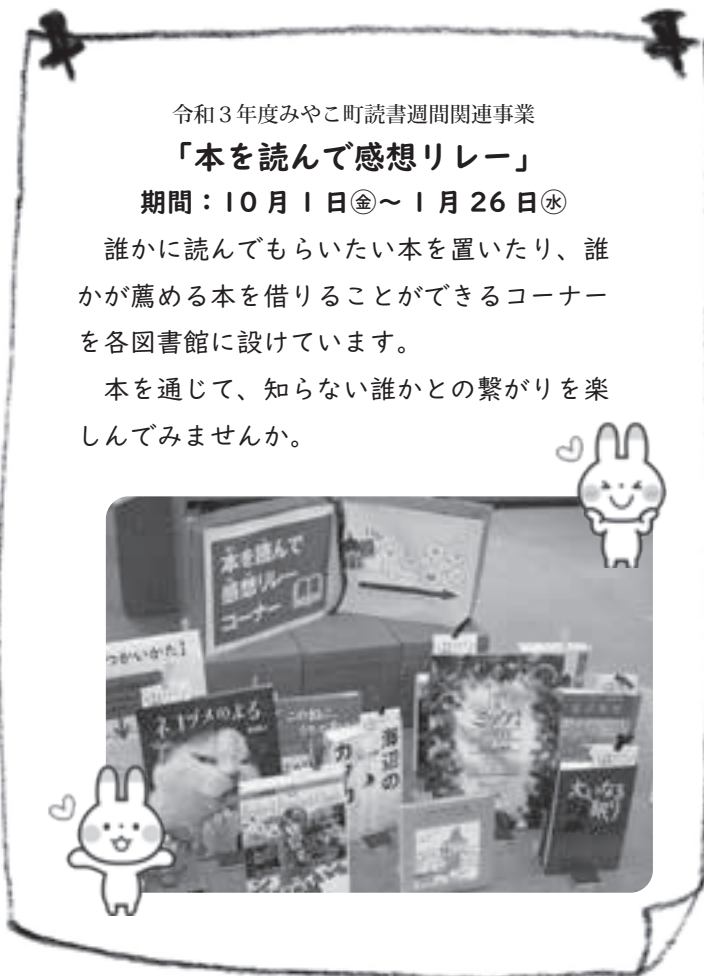 令和３年度みやこ町読書週間関連事業
「本を読んで感想リレー」
期間：10月1日㊎～1月26日㊌
　誰かに読んでもらいたい本を置いたり、誰
かが薦める本を借りることができるコーナー
を各図書館に設けています。
　本を通じて、知らない誰かとの繋がりを楽
しんでみませんか。
本を読んで
感想リレー
コーナー
つかいかた】
ネコヅメのよる
このねこ
海辺の
カフカ
大いなる
眠り